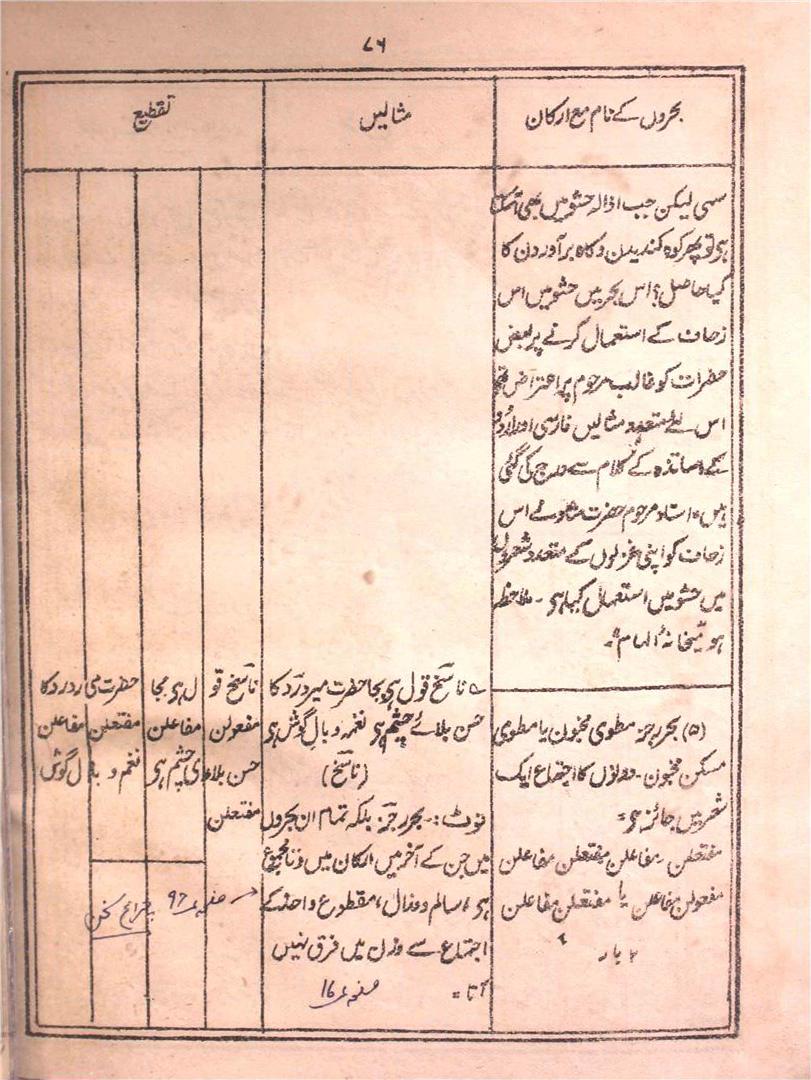 ۷۶
بحروں کے نام مع ارکان
مثالیں
تقطیع
سہی لیکن جب اذالہ حشو میں بھی آسکتا
ہی تو پھر کوہ کندیدن و کاہ برآوردن کا
کیا حاصل؟ اس بحر میں حشو میں اس
زحاف کے استعمال کرنے پر بعض
حضرات کو غالب مرحوم پر اعتراض تھا
اس لئے متعدد مثالیں فارسی اور اُردو
کے اساتذہ کے کلام سے درج کی گئی
ہیں۔ استاد مرحوم حضرت شاد نے اس
زحاف کو اپنی غزلوں کے متعدد شعروں
میں حشو میں استعمال کیا ہی۔ ملاحظہ
ہو میخانۂ الہام۔
(۵) بحر رجز مطوی مخبون یا مطوی
مسکن مخبون۔ دونوں کا اجتماع ایک
شعر میں جائز ہی۔
مفتعلن مفاعلن مفتعلن مفاعلن
مفعولن مفاعلن یا مفتعلن مفاعلن
۲ بار
ناسخ قول ہی بجا حضرت میر درد کا
حسن بلائے چشم ہی نغمہ و بال گوش ہی
(ناسخ)
نوٹ:۔ بحر رجز بلکہ تمام ان بحروں
میں جن کے آخر میں ارکان میں وتد مجموع
ہو، سالم و مذال، مقطوع واحذ کے
اجتماع سے وزن میں فرق نہیں
آتا۔
صفحہ ۱۶
ناسخ قو
ل ہی بجا
حضرت می
ر درد کا
مفعولن
مفاعلن
مفتعلن
مفاعلن
حسن بلا
ی چشم ہی
نغم و با
ل گوش
مفتعلن
صفحہ ۹۶
چراغ سخن